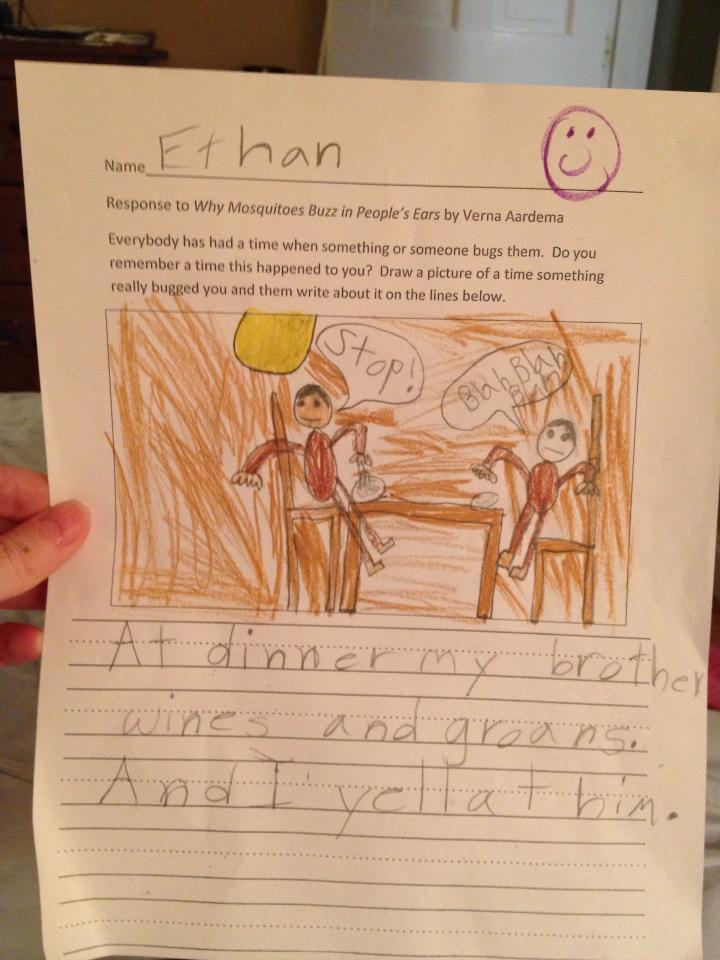 Name Ethan
Response to Why Mosquitoes Buzz in People's Ears by Verna Aardema
Everybody has had a time when something or someone bugs them. Do you
remember a time this happened to you? Draw a picture of a time something
really bugged you and them write about it on the lines below.
Stop!
Blah Blah
Blah
At dinner my brother
wines and groans.
And I yell at him.